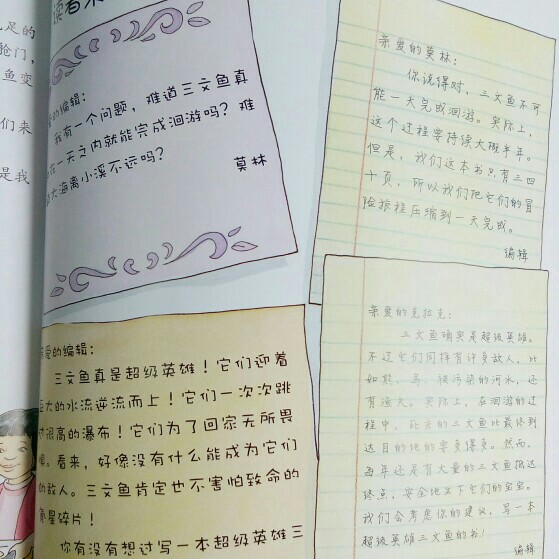 足的
轮门，
鱼变
们来
是我
读者来
的编辑：
我有一个问题，难道三文鱼真
在一天之内就能完成洄游吗？难
大海离小溪不远吗？
莫林
亲爱的莫林：
你说得对，三文鱼不可
能一天完成洄游。实际上，
这个过程要持续大概半年。
但是，我们这本书只有三四
十页，所以我们把它们的冒
险旅程压缩到一天完成。
编辑
亲爱的编辑：
三文鱼真是超级英雄！它们迎着
巨大的水流逆流而上！它们一次次跳
过很高的瀑布！它们为了回家无所畏
惧。看来，好像没有什么能成为它们
的敌人。三文鱼肯定也不害怕致命的
星碎片！
你有没有想过写一本超级英雄三
亲爱的克拉克：
三文鱼确实是超级英雄。
不过它们同样有许多敌人，比
如熊、鸟、被污染的河水，还
有渔夫。实际上，在洄游的过
程中，死去的三文鱼比最终到
达目的地的要多得多。然而，
每年还是有大量的三文鱼抵达
终点，安全地产下它们的宝宝。
我们会考虑你的建议，写一本
超级英雄三文鱼的书！
编辑